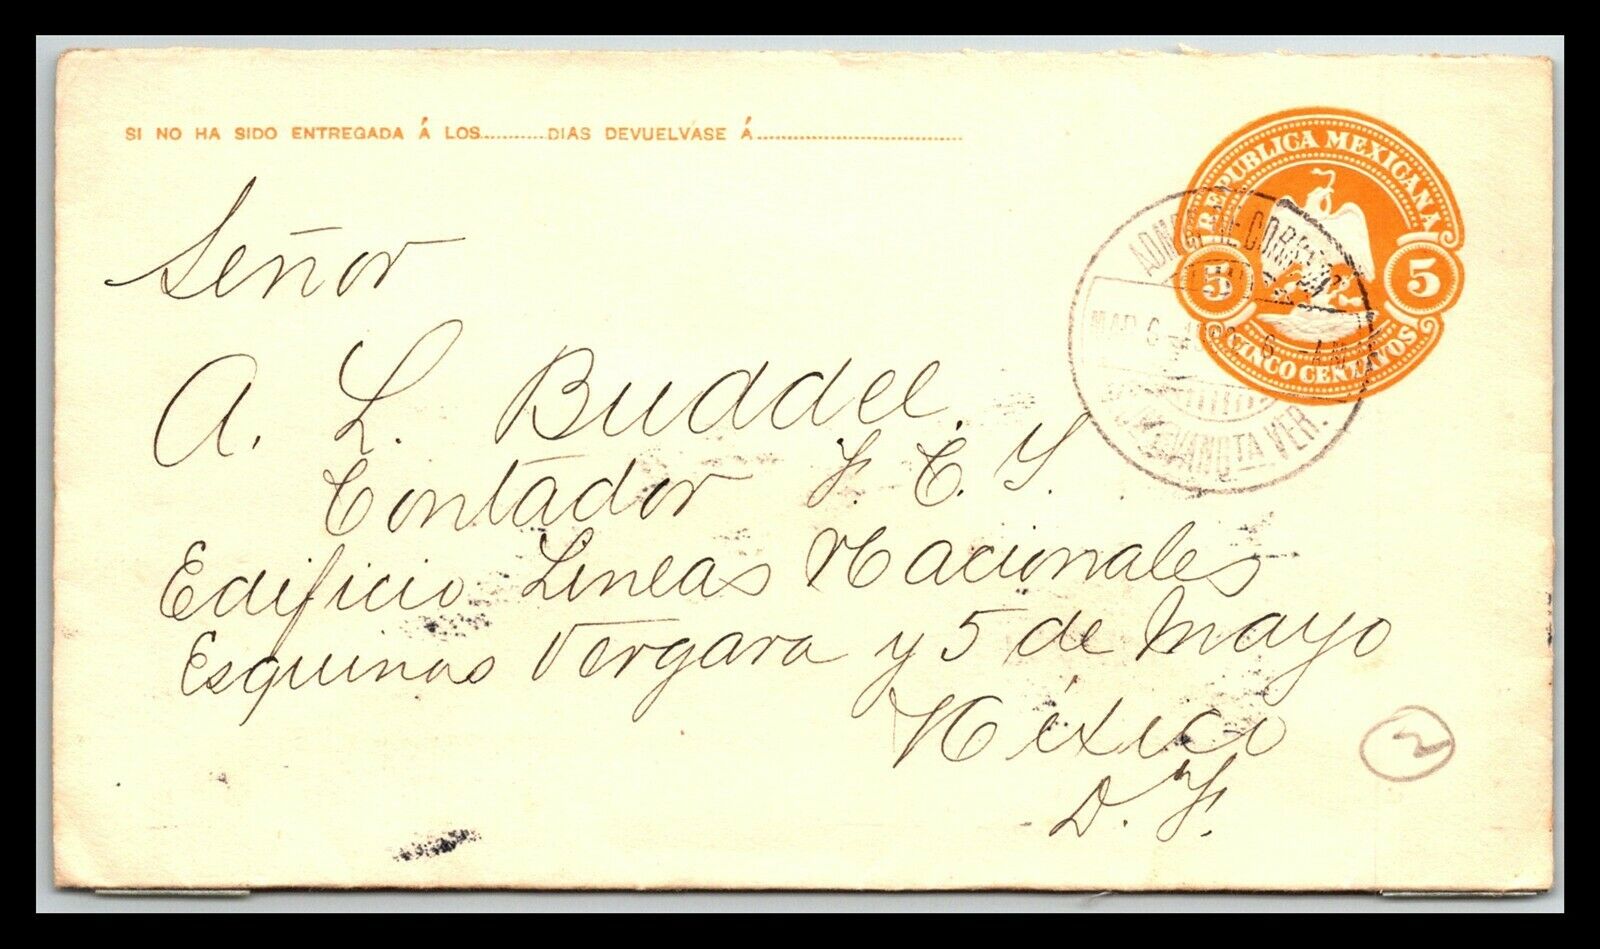 SI NO HA SIDO ENTREGADA Á LOS..........DIAS DEVUELVASE Á..............................
REPUBLICA MEXICANA
5 5
CINCO CENTAVOS
ADMON DE CORREOS
MAR 6 6 - AM
VER.
Señor
A. L. Buddee.
Contador F. C. I.
Edificio Lineas Nacionales
Esquinas Vergara y 5 de Mayo
México
D. F.
2